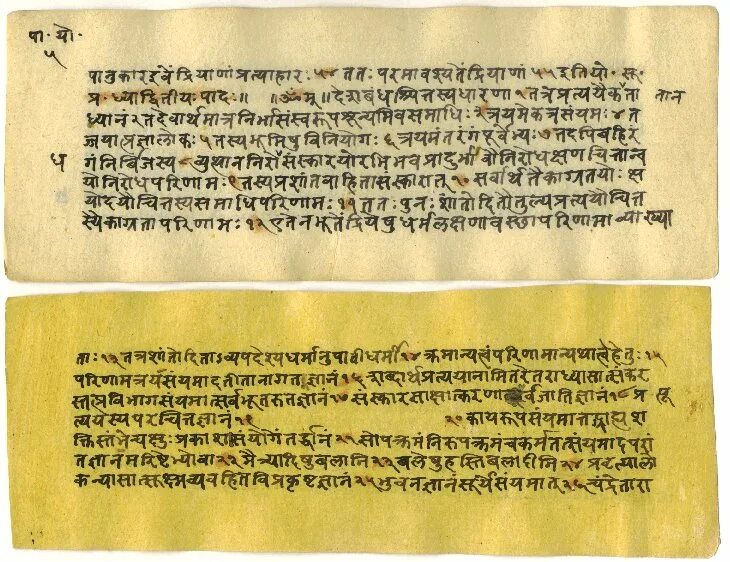 पा॰ यो॰
५
पानुकारइवेंद्रियाणांप्रत्याहारः ५४ ततः परमावश्यतेंद्रियाणां ५५ इतियो॰ सू॰
प्र॰ध्याद्वितीयःपादः॥ ॥ॐम्॥देशबंधश्चित्तस्यधारणा १तत्रप्रत्ययैकता तान
ध्यानं २तदेवार्थमात्रनिर्भासंस्वरूपशून्यमिवसमाधिः ३त्रयमेकत्रसंयमः ४त
ज्जयात्प्रज्ञालोकः ५तस्यभूमिषुविनियोगः ६त्रयमंतरंगंपूर्वेभ्यः ७तदपिबहिरं
ध गंनिर्बीजस्य ८व्युत्थाननिरोसंस्कारयोरभिभवप्रादुर्भावौनिरोधक्षणचित्तान्व
योनिरोधपरिणामः ९तस्यप्रशांतवाहितासंस्कारात् १० सर्वार्थतैकाग्रतयोः क्ष
योदयौचित्तस्यसमाधिपरिणामः ११ ततः पुनः शांतोदितौतुल्यप्रत्ययौचित्त
स्यैकाग्रतापरिणामः १२ एतेनभूतेंद्रियेषुधर्मलक्षणावस्थापरिणामाव्याख्या
ताः १३ तत्रशांतोदिताऽव्यपदेश्यधर्मानुपातीधर्मी १४ क्रमान्यत्वंपरिणामान्यथात्वेहेतुः १५
परिणामत्रयसंयमादतीतानागतज्ञानं १६ शब्दार्थप्रत्ययानामितरेतराध्यासात्संकर
स्तत्प्रविभागसंयमात्सर्वभूतरुतज्ञानं १७ संस्कारसाक्षात्करणात्पूर्वजातिज्ञानं १८ प्र सू
त्ययस्यपरचित्तज्ञानं १९ २० कायरूपसंयमात्तद्ग्राह्यश
क्तिस्तंभेचक्षुःप्रकाशासंयोगेंतर्द्धानं २१ सोपक्रमंनिरुपक्रमंचकर्मतत्संयमादपरांत
तज्ञानमरिष्टेभ्योवा २२ मैत्र्यादिषुबलानि २३ बलेषुहस्तिबलादीनि २४ प्रवृत्त्यालो
कन्यासात्सूक्ष्मव्यवहितविप्रकृष्टज्ञानं २५ भुवनज्ञानंसूर्येसंयमात् २६ चंद्रेतारा